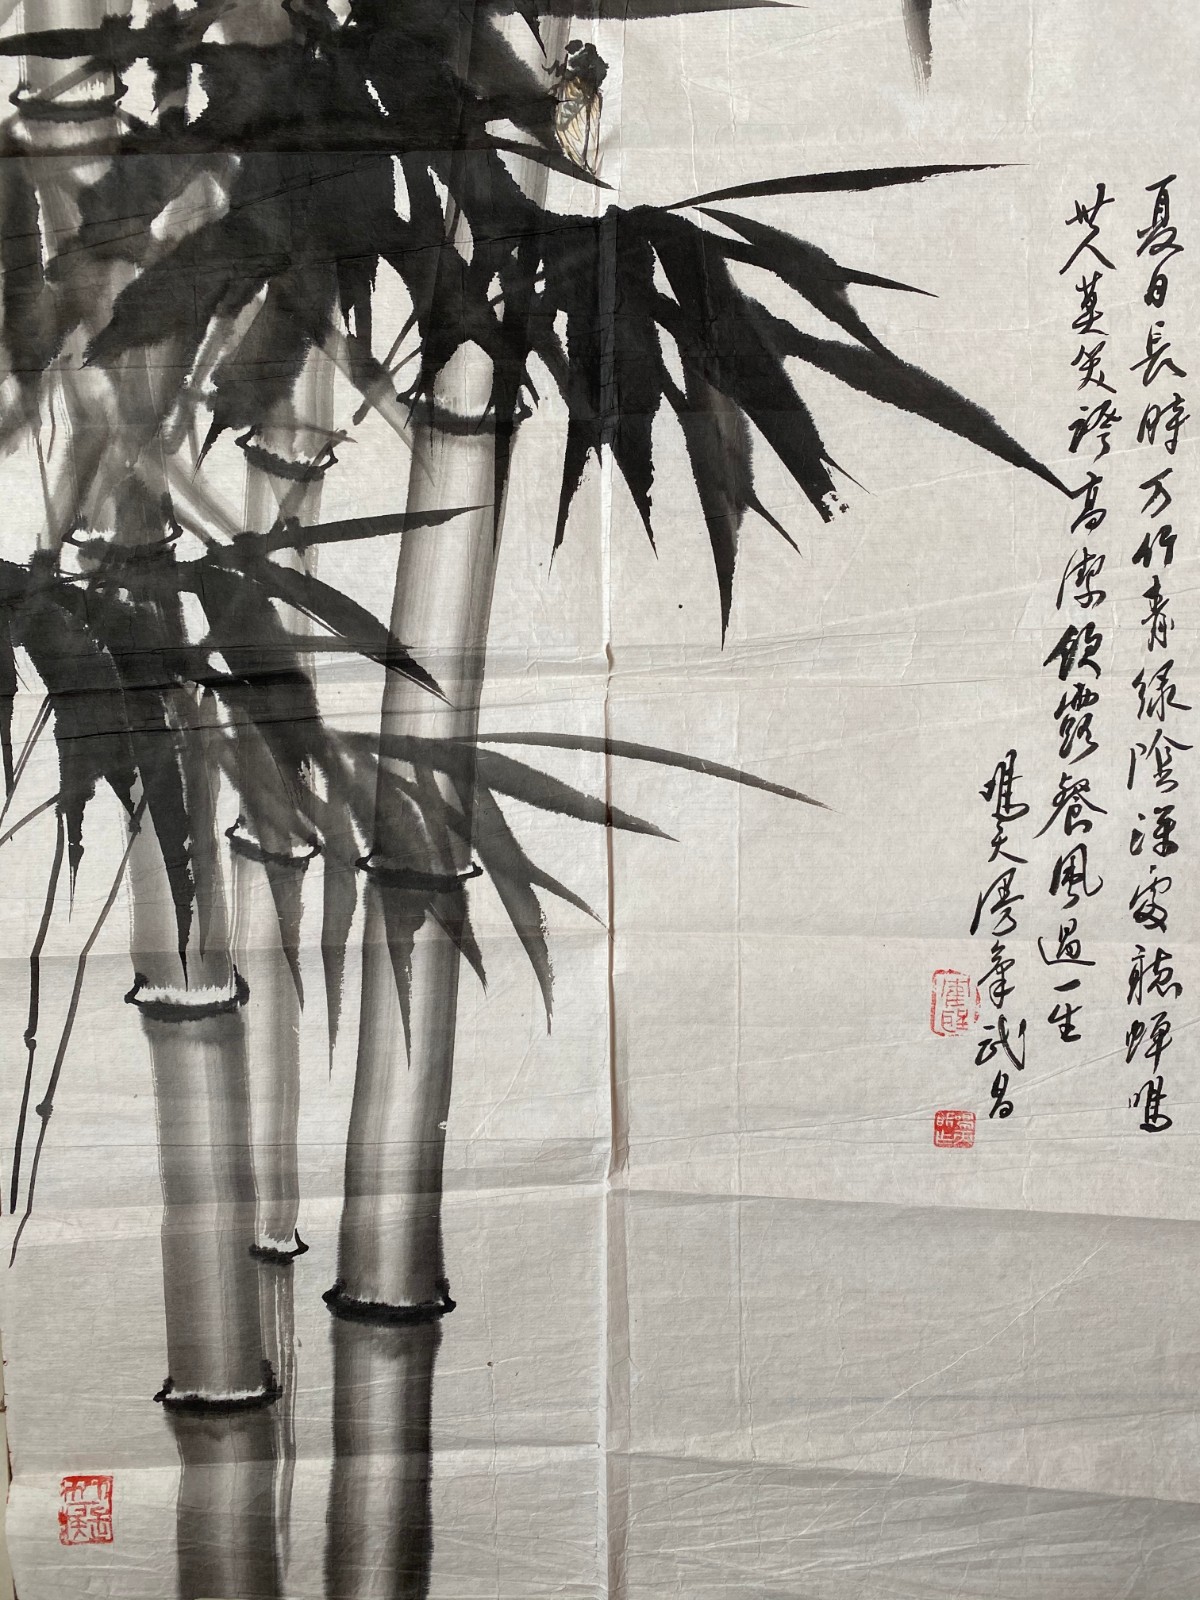 夏日長時万竹青绿陰深處聽蝉鳴
世人莫笑誇高潔飲露餐風過一生
鳴天漫筆武昌